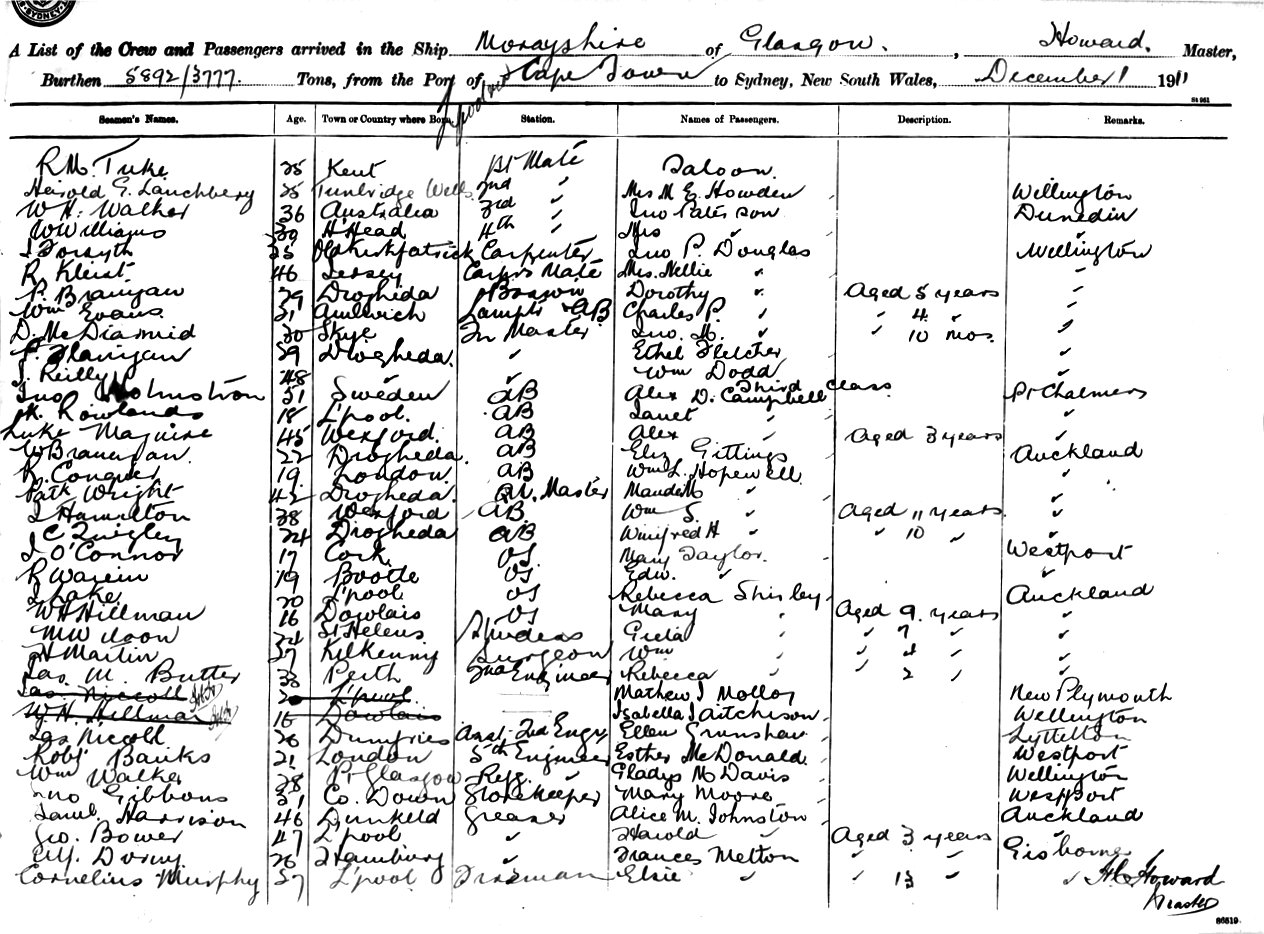 SYDNEY
A List of the Crew and Passengers arrived in the Ship Morayshire of Glasgow. , Howard. Master,
Burthen 5892/3777. Tons, from the Port of L'pool via Cape Town to Sydney, New South Wales, December 1 1911
St 961
Seamen's Names. Age. Town or Country where Born. Station. Names of Passengers. Description. Remarks.
R.M. Tuke 25 Kent Mate Saloon.
Harold G. Lanchbery 25 Tunbridge Wells 2nd " Mrs M E Howden Wellington
W.H. Walker 36 Australia 3rd " Jno Paterson Dunedin
W Williams 30 H'Head 4th " Mrs " "
J Forsyth 35 Old Kirkpatrick Carpenter Jno P. Douglas Wellington
R. Kleist 46 Jersey Carp's Mate Mrs. Nellie " "
P. Branigan 29 Drogheda Bosson Dorothy " Aged 5 years "
Wm Evans 31 Amlwich Lamps & AB Charles P. " " 4 " "
D. McDiarmid 30 Skye Qr Master Jno. H. " " 10 mos. "
P. Flanigan 29 Drogheda. " Ethel Fletcher "
J. Reilly 48 " " Wm Dodd "
Third Class
Jno Holmstrom 51 Sweden AB Alex D. Campbell Pt Chalmers
Rowlands 18 L'pool. AB Janet " "
Luke Maguire 45 Wexford. AB Alex " Aged 3 years "
W Branigan. 22 Drogheda. AB Eliz Gittings Auckland
R. Conquer 19 London. AB Wm L. Hopewell "
Patk Wright 42 Drogheda. Qr. Master Maude M " "
J Hamilton 38 Wexford AB Wm S " Aged 11 years. "
C Quigley 24 Drogheda AB Winifred H " " 10 " "
J O'Connor 17 Cork. OS Mary Taylor. Westport
R Warein 19 Bootle OS Edw. " "
J Lake 20 L'pool OS Rebecca Shirley Auckland
W H Hillman 16 Dowlais OS Mary " Aged 9 years "
M Wilson 34 St Helens Greta " " 7 " "
H Martin 37 Kilkenny Surgeon Wm " " 4 " "
Jas. M. Butter 33 Perth 2nd Engineer Rebecca " " 2 " "
Jas. Niccoll L'pool Mathew J Molloy New Plymouth
W.H. Hillman 16 Dowlais Isabella J Aitchison Wellington
Jas Nicoll 26 Dumfries Asst. 2nd Engr Ellen Grunshaw Lyttelton
Robt Banks 21 London 5th Engineer Esther McDonald Westport
Wm Walker 28 Pt Glasgow Refg. " Gladys M Davis Wellington
Jno Gibbons 51 Co. Down Storekeeper Mary Moore Westport
Saml. Harrison 46 Dunkeld Greaser Alice M. Johnston Auckland
Geo. Bower 47 L'pool " Harold " Aged 3 years "
Alf. 26 Hamburg " Frances Melton Gisborne
Cornelius Murphy 37 L'pool Fireman Elsie " " 13 " " H C Howard
Master
86519